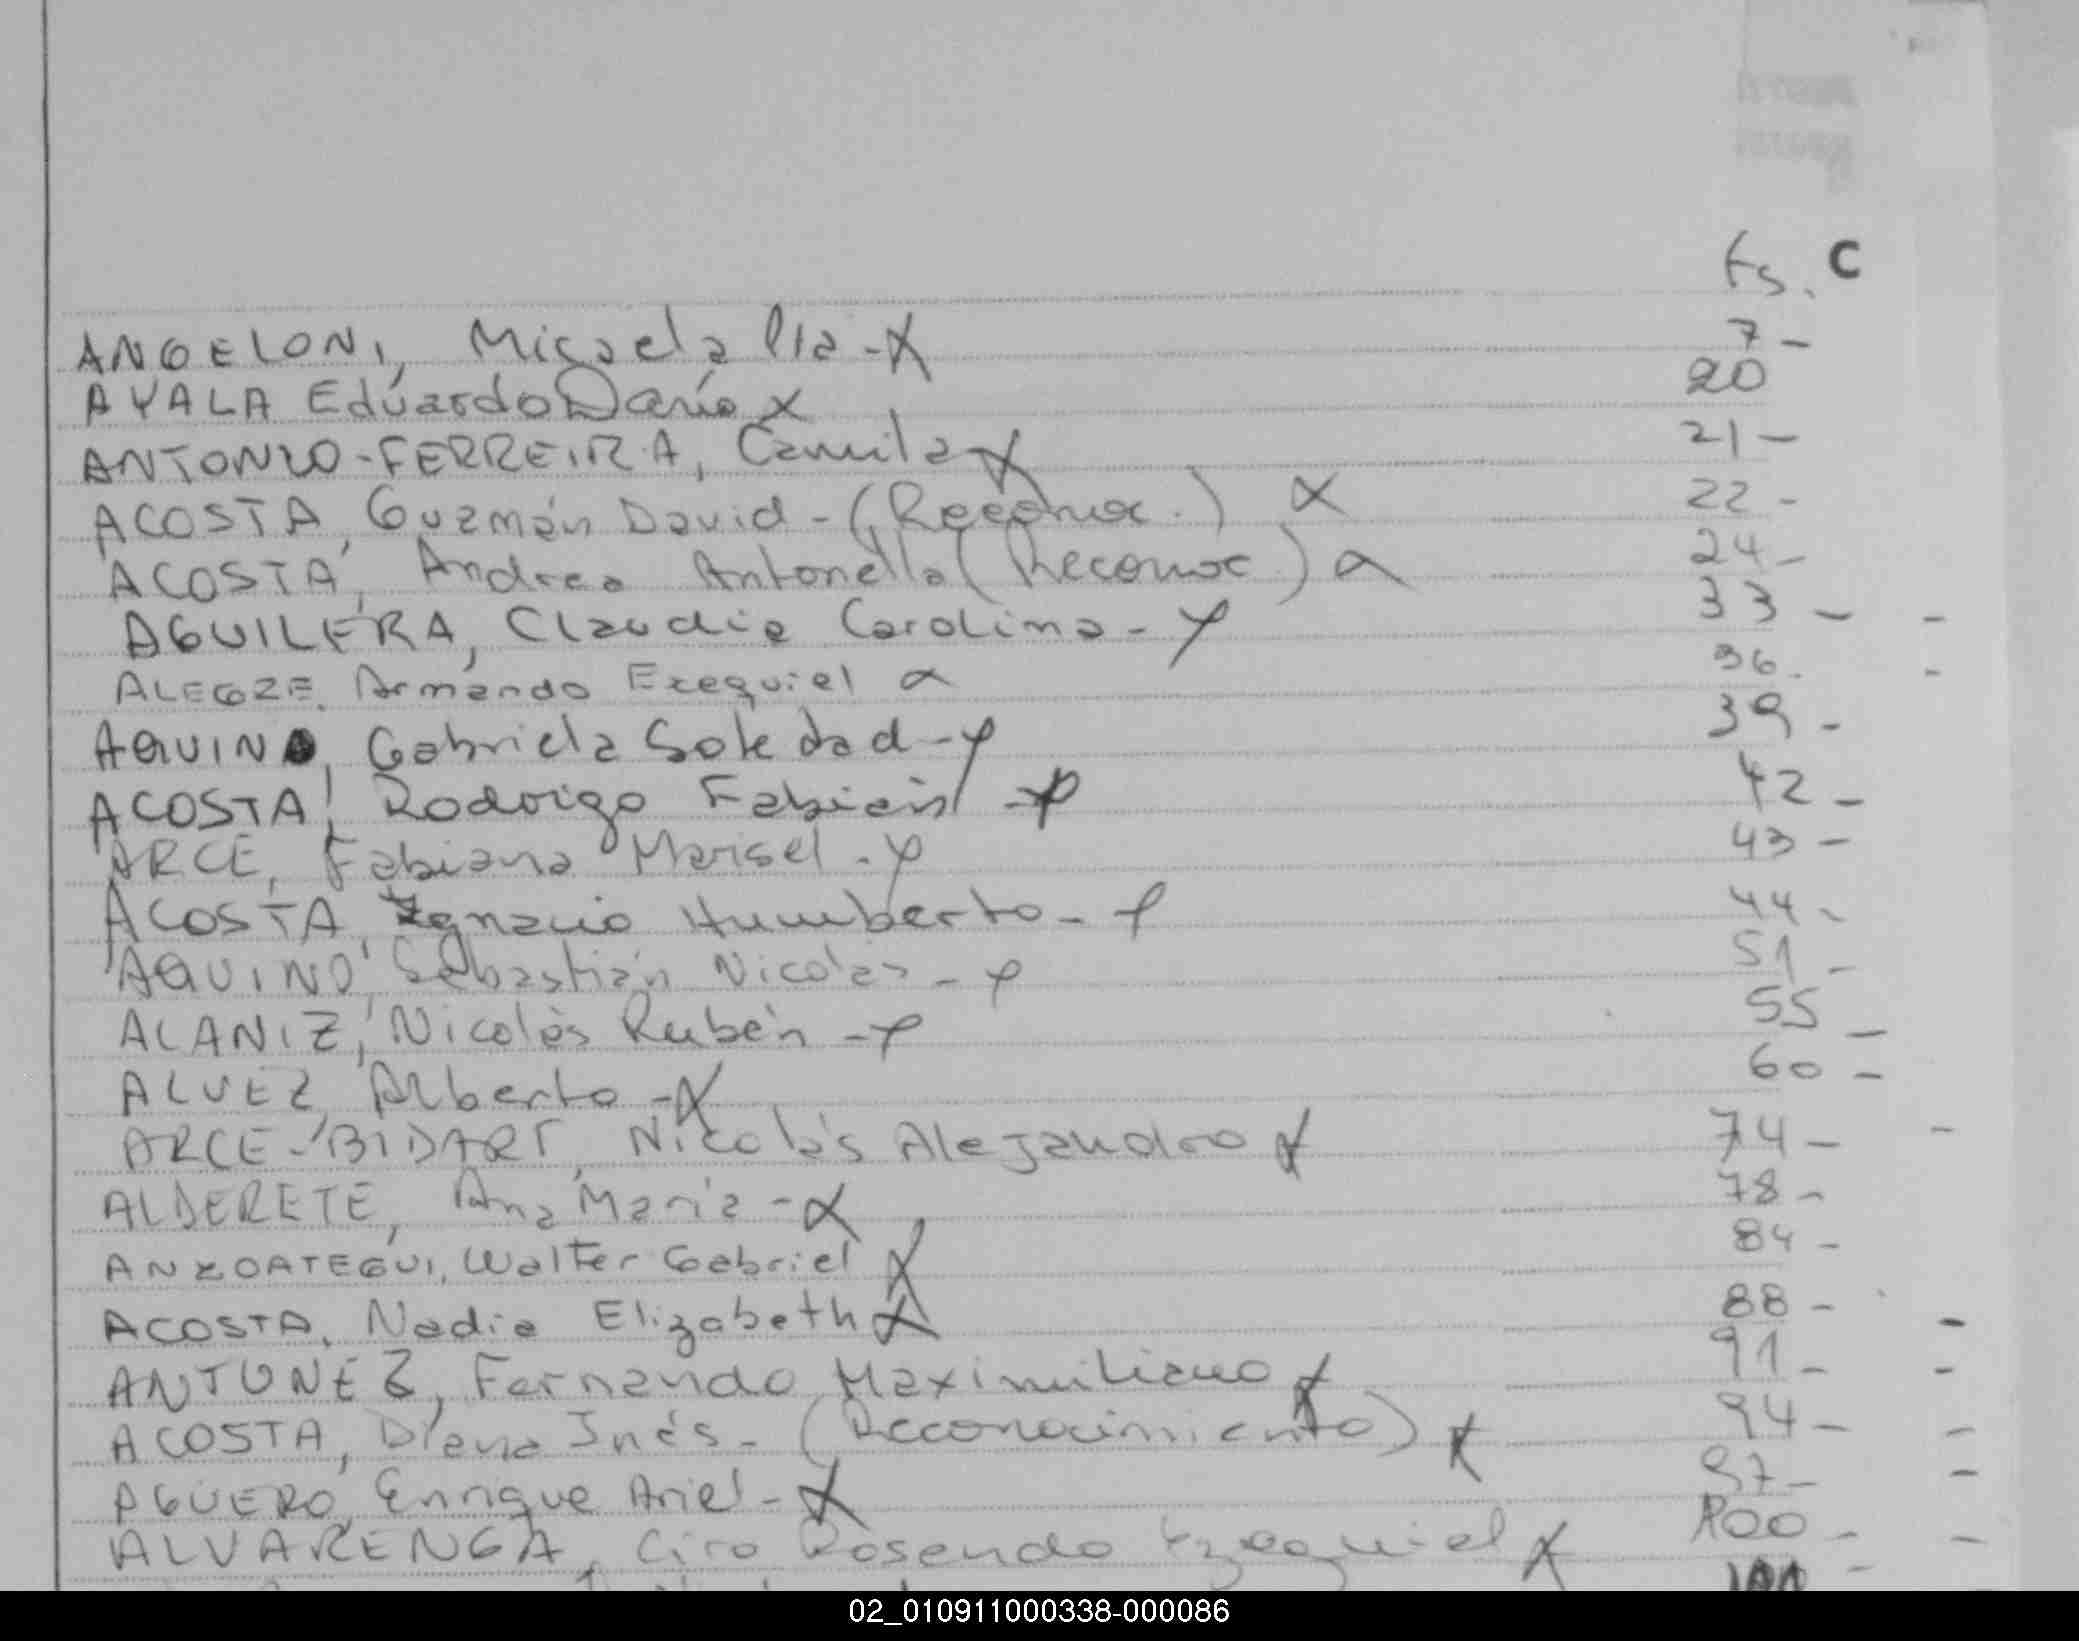 Fs. C
ANGELONI, Micaela Pía - X 7 -
AYALA Eduardo Darío X 20
ANTONIO-FERREIRA, Camila X 21 -
ACOSTA, Guzmán David - (Reconoc.) X 22 -
ACOSTA, Andrea Antonella (Reconoc) X 24 -
AGUILERA, Claudia Carolina - X 33 - -
ALEGRE, Armando Ezequiel X 36. -
AQUINO, Gabriela Soledad - X 39 -
ACOSTA, Rodrigo Fabián - X 42 -
ARCE, Fabiana Marisel - X 43 -
ACOSTA, Ignacio Humberto - X 44 -
AQUINO, Sebastián Nicolás - X 51 -
ALANIZ, Nicolás Rubén - X 55 -
ALVEZ, Alberto - X 60 -
ARCE-BIDART, Nicolás Alejandro X 74 - -
ALDERETE, Ana María - X 78 -
ANZOATEGUI, Walter Gabriel X 84 -
ACOSTA, Nadia Elizabeth X 88 - -
ANTUNEZ, Fernando Maximiliano X 91 - -
ACOSTA, Diana Inés - (Reconocimiento) X 94 - -
AGUERO, Enrique Ariel - X 97 - -
ALVARENGA, Ciro Rosendo Ezequiel X 100 - -
02_010911000338-000086